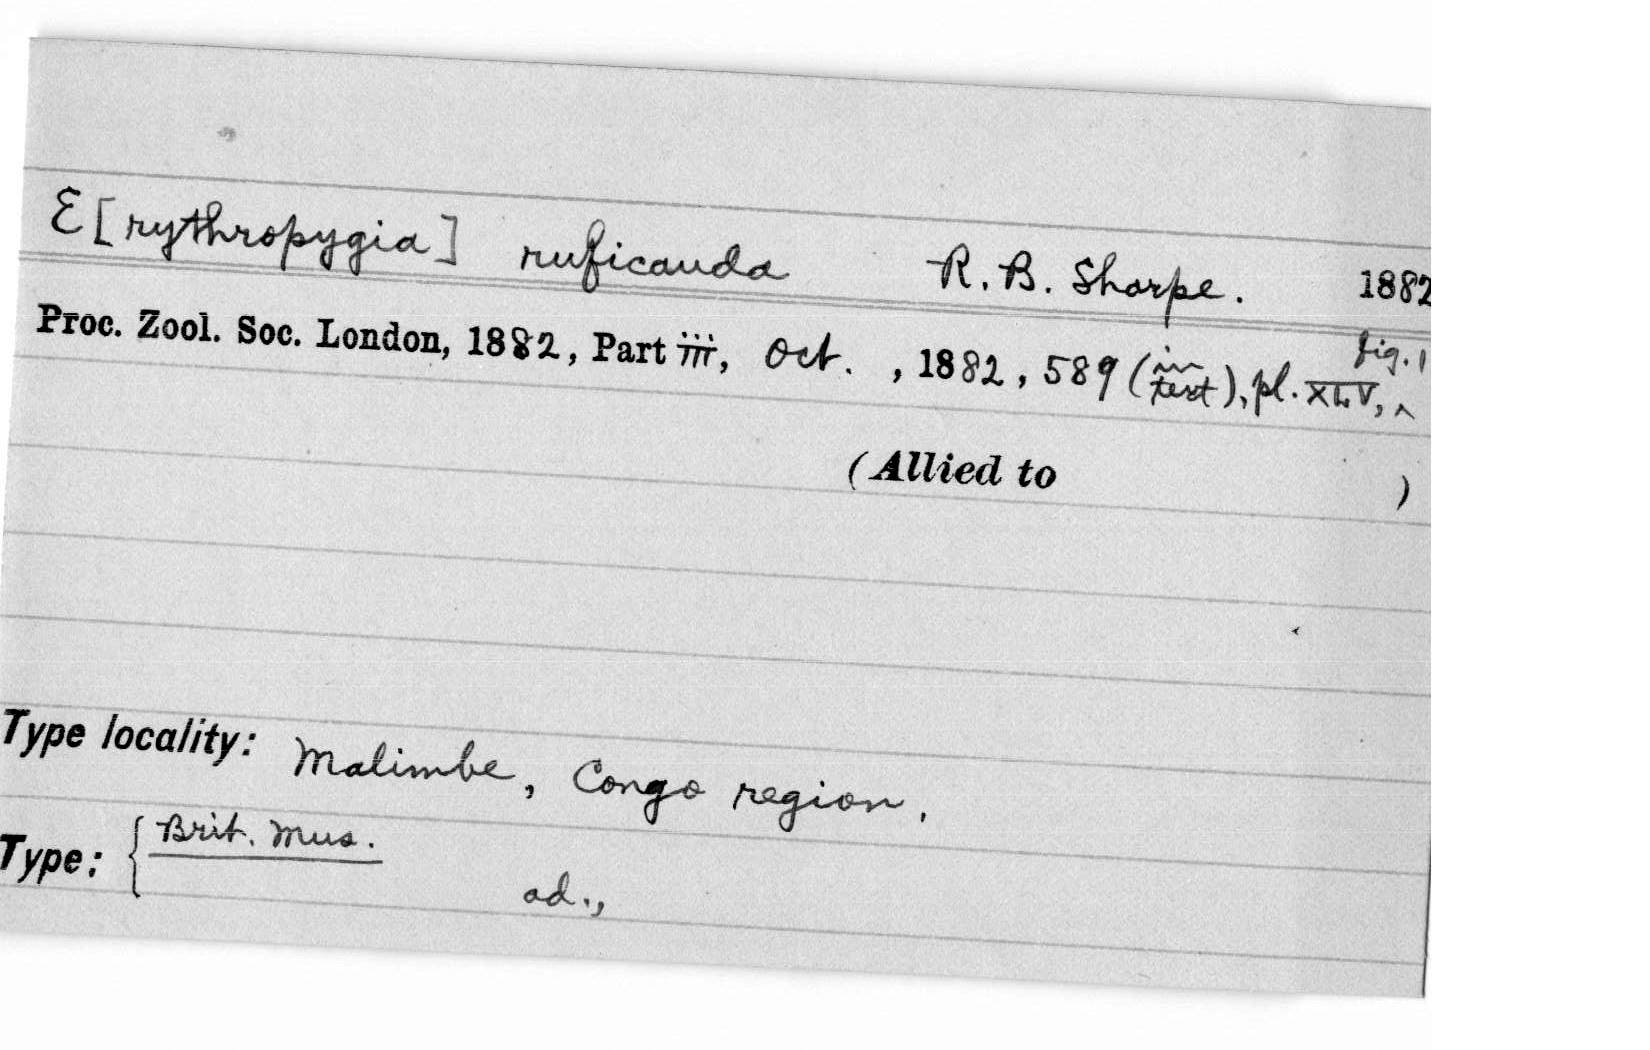 E[rythropygia] ruficauda R. B. Sharpe. 1882
Proc. Zool. Soc. London, 1882, Part iii, Oct. , 1882, 589 (in text), pl. XLV, ^ fig. 1
(Allied to )
Type locality: Malimbe, Congo region.
Type: { Brit. Mus.
ad.,